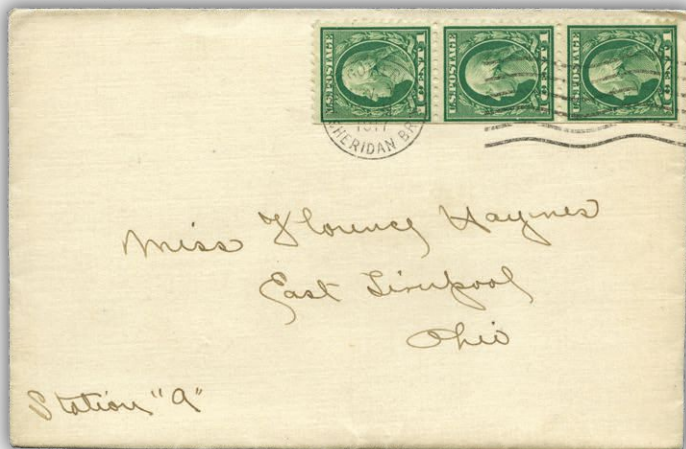 U.S.POSTAGE 1 CENT 1
U.S.POSTAGE 1 CENT 1
U.S.POSTAGE 1 CENT 1
1917
SHERIDAN BR
Miss Florence Haynes
East Liverpool
Ohio
Station "A"